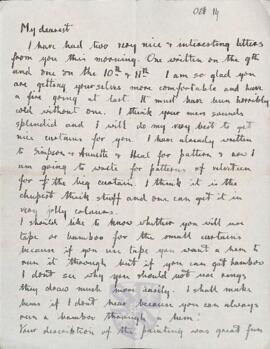 Oct 14
My dearest
I have had two very nice & interesting letters
from you this morning. One written on the 9th
and one on the 10th & 11th I am so glad you
are getting yourselves more comfortable and have
a fire going at last. It must have been horribly
cold without one. I think your men sounds
splendid and I will do my very best to get
nice curtains for you. I have already written
to Simpson & and Heal for patterns & now I
am going to write for patterns of velveteen
for the big curtain. I think it is the
cheapest thick stuff and one can get it in
very jolly colours.
I should like to know whether you will use
tape or bamboo for the small curtains
because if you use tape you want a hem to
run it through but if you can get bamboo
I don't see why you should not use rings
they draw much more easily. I shall make
hems if I don't hear because you can always
run a bamboo through a hem!
Your description of the painting was great fun